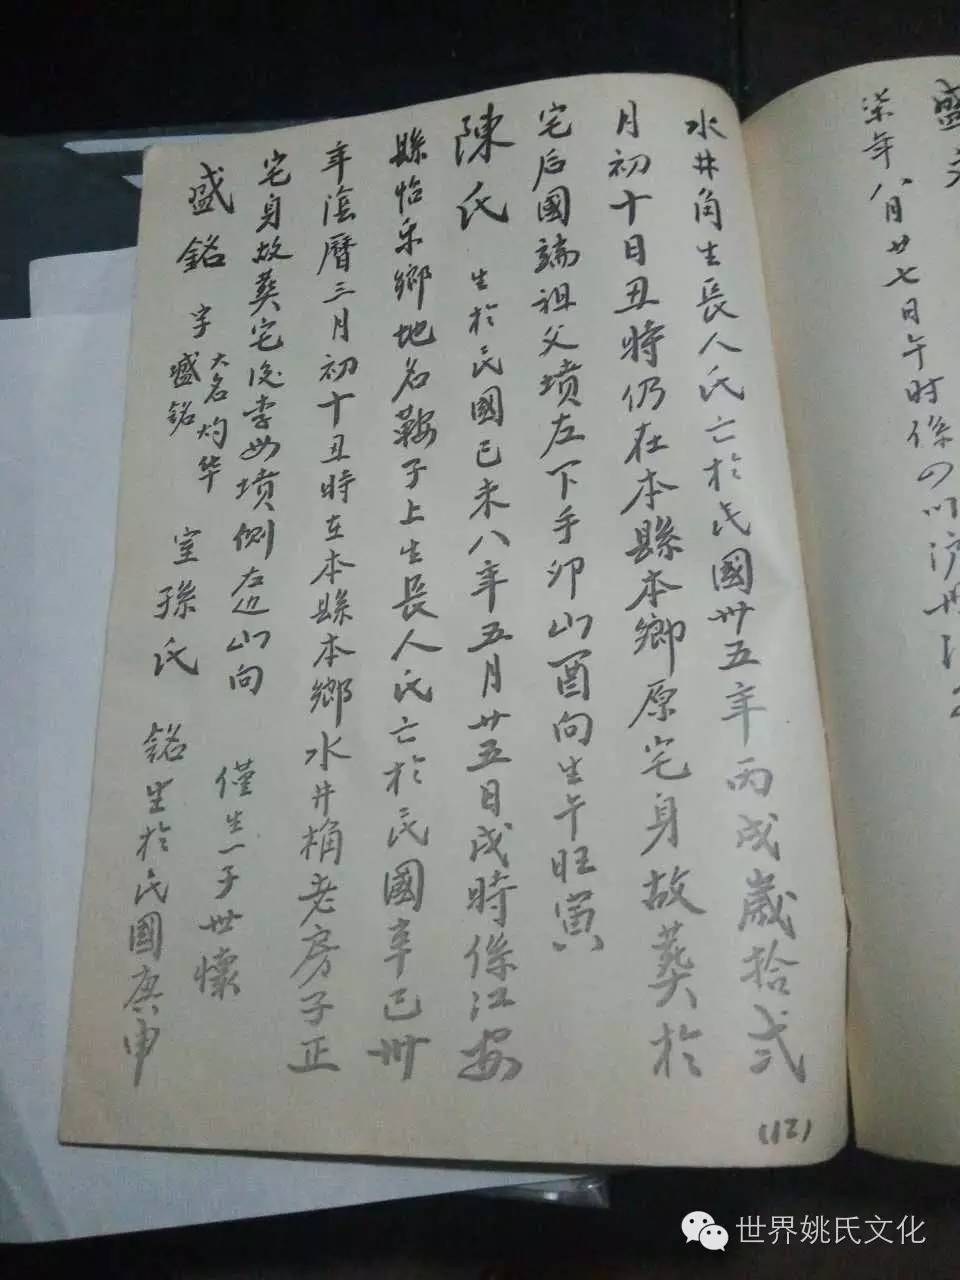 盛
柒年八月廿七日午时係四川泸州
水井角生長人氏亡於民國卅五年丙戌歲拾弍
月初十日丑時仍在本縣本鄉原宅身故葬於
宅后國端祖父墳左下手卯山酉向生午旺寅
陳氏 生於民國已未八年五月廿五日戌時係江安
縣怡乐鄉地名鞍子上生長人氏亡於民國辛已卅
年陰曆三月初十丑時在本縣本鄉水井桷老房子正
宅身故葬宅后李女墳側左边山向 僅生一子世懷
盛銘 大名灼华 字盛銘 室孫氏 銘生於民國庚申
(12)
世界姚氏文化